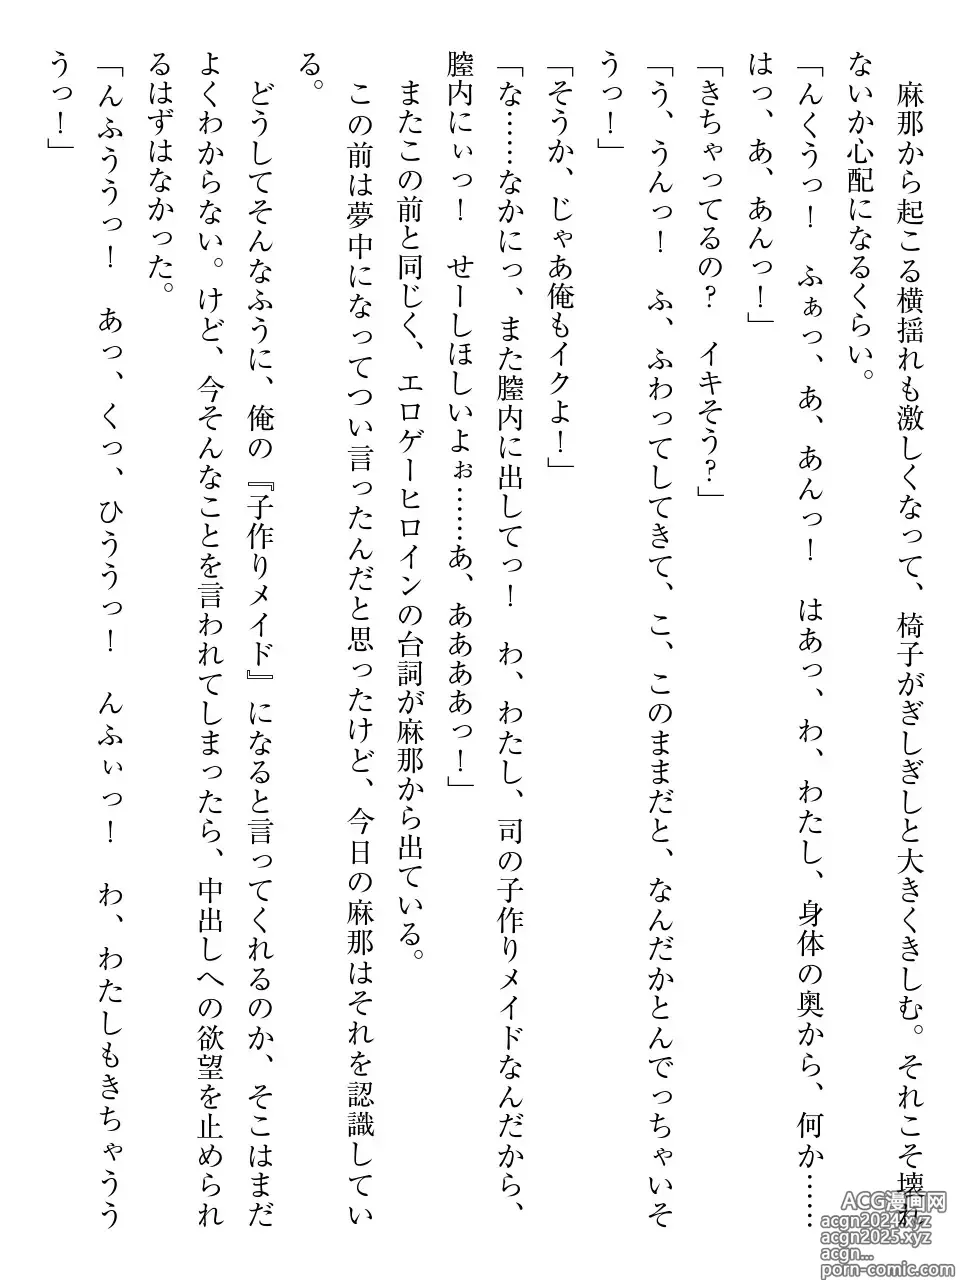 麻那から起こる横揺れも激しくなって、椅子がぎしぎしと大きくきしむ。それこそ壊れ
ないか心配になるくらい。
「んくうっ！　ふぁっ、あ、あんっ！　はあっ、わ、わたし、身体の奥から、何か……
はっ、あ、あんっ！」
「きちゃってるの？　イキそう？」
「う、うんっ！　ふ、ふわってしてきて、こ、このままだと、なんだかとんでっちゃいそ
うっ！」
「そうか、じゃあ俺もイクよ！」
「な……なかにっ、また膣内に出してっ！　わ、わたし、司の子作りメイドなんだから、
膣内にぃっ！　せーしほしいよぉ……あ、ああああっ！」
またこの前と同じく、エロゲーヒロインの台詞が麻那から出ている。
この前は夢中になってつい言ったんだと思ったけど、今日の麻那はそれを認識してい
る。
どうしてそんなふうに、俺の『子作りメイド』になると言ってくれるのか、そこはまだ
よくわからない。けど、今そんなことを言われてしまったら、中出しへの欲望を止められ
るはずはなかった。
「んふううっ！　あっ、くっ、ひううっ！　んふぃっ！　わ、わたしもきちゃうう
うっ！」
ACG漫画网
acgn2024.xyz
acgn2025.xyz
acgn...
porn-comic.com